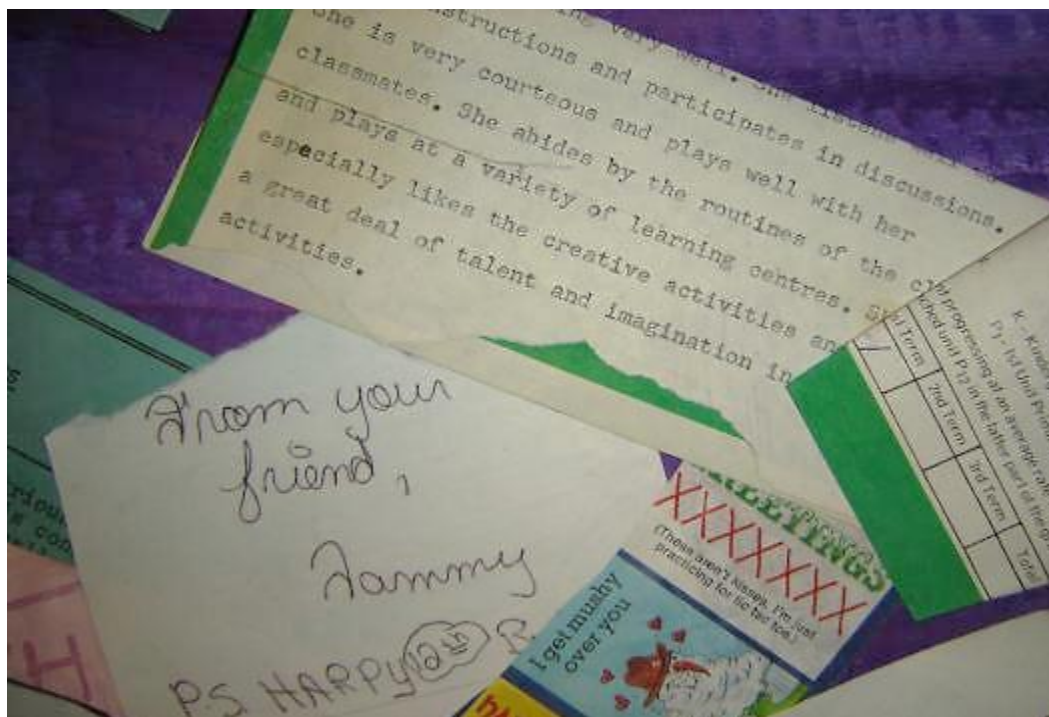 very well. She
instructions and participates in discussions.
She is very courteous and plays well with her
classmates. She abides by the routines of the
and plays at a variety of learning centres.
especially likes the creative activities and
a great deal of talent and imagination in
activities.
From your
friend,
Tammy
P.S. HAPPY 12th B.
GREETINGS
XXXXXXX
(These aren't kisses, I'm just
practicing for tic tac toe.)
I get mushy
over you
K -
P1 - 1st Unit
progressing at an average rate
unit P12 in the latter part of the
Term
2nd Term
3rd Term
Total